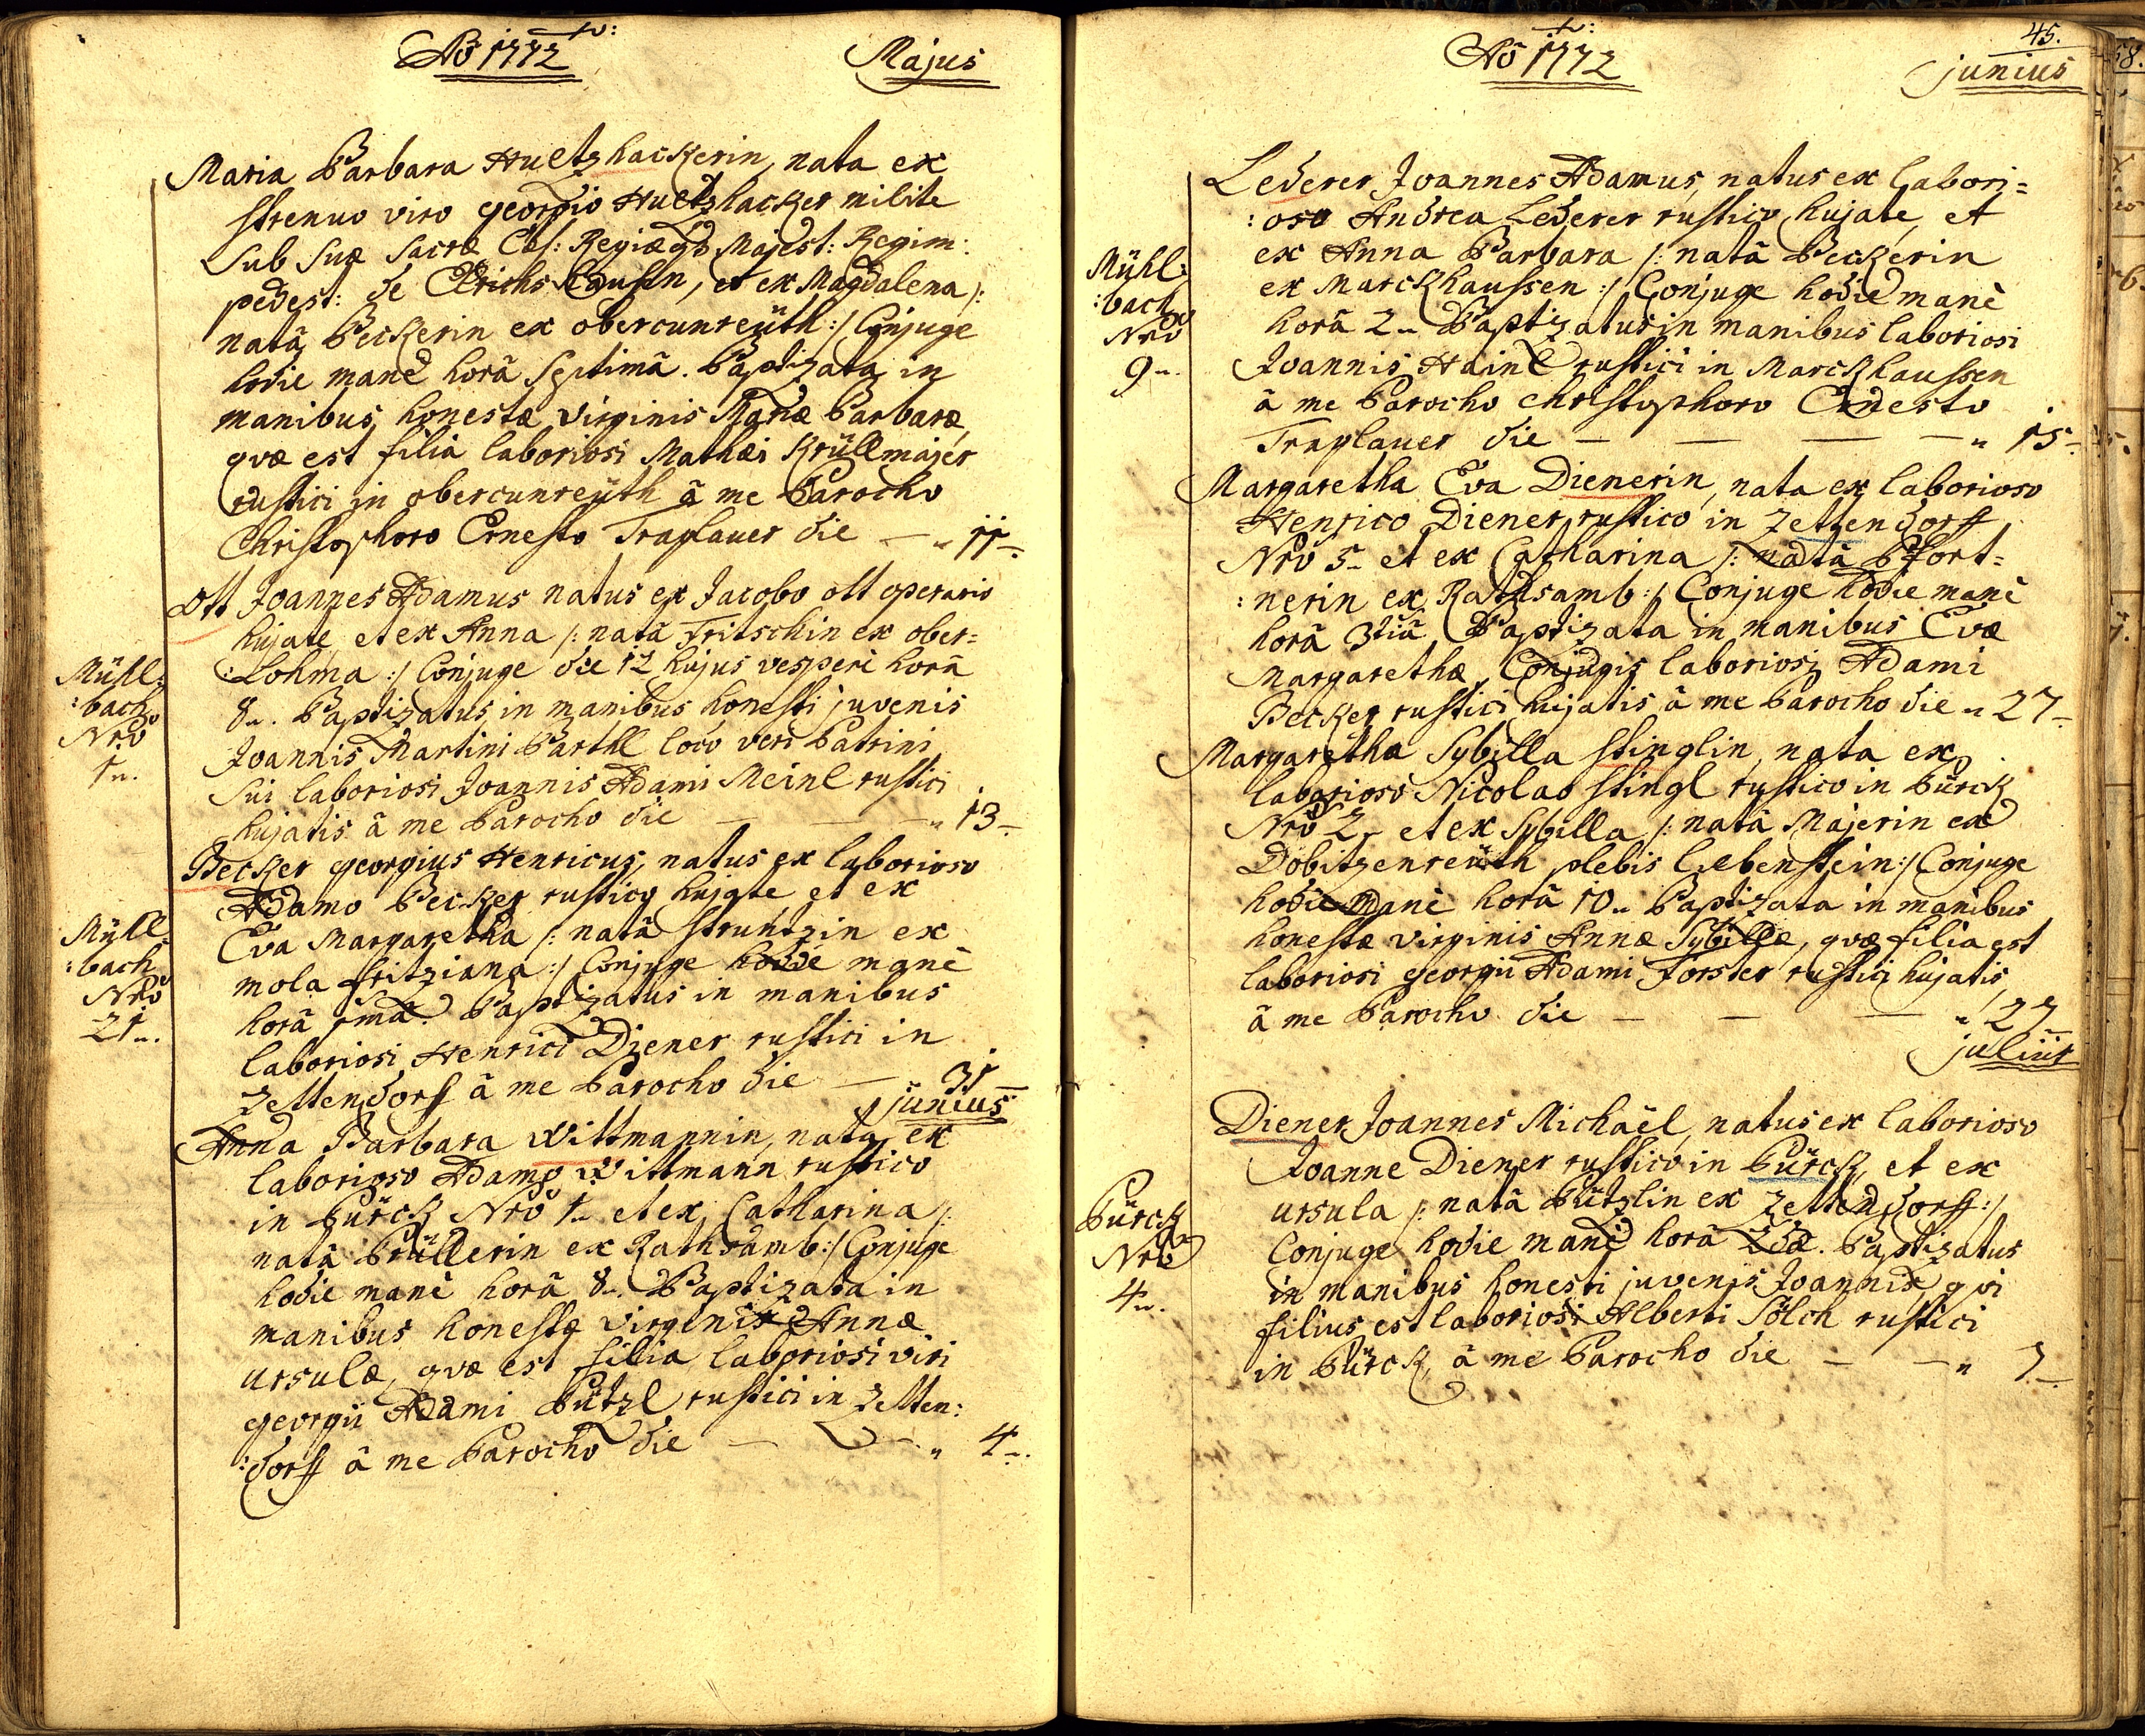 Aõ 1772
Majus
Maria Barbara Hueltzhackerin, nata ex
strenuo viro georgio Hueltzhacker milite
sub suæ sacræ Cæs: Regiæqz Majest: Regim:
pedest: de
natâ Beckerin ex obercunreüth :/ Conjuge
hodie manè horâ septimâ. Baptizata in
manibus honestæ virginis Barbaræ,
qvæ est filia laboriosi Mathæi Krüllmajer
rustici in obercunreüth â me Parocho
Christophoro Ernesto Traplauer die — „ 11 —.
Mühl:
:bach
Nrõ
1„.
Ott Joannes Adamus natus ex Jacobo ott operario
hujate, et ex Anna /: natâ Fritschin ex ober=
:Lohma :/ Conjuge die 12 hujus vesperi horâ
8„. Baptizatus in manibus honesti juvenis
Joannis Martini Barthl loco veri Patrini
sui laboriosi Joannis Adami Meinl rustici
hujatis â me Parocho die — — — „ 13 —
Mühl
:bach
Nrõ
21„.
Becker georgius Henricus, natus ex laborioso
Adamo Becker rustico hujate et ex
Eva Margaretha /: natâ struntzin ex
mola fritziana :/ Conjuge hodie manè
horâ 1mâ. Baptizatus in manibus
laboriosi Henrici Diener rustici in
Zettendorff â me Parocho die — „ 31 —
junius
Anna Barbara Wittmannin, nata ex
laborioso Adamo Wittmann rustico
in Pürck Nrõ 1„ et ex Catharina /:
natâ Brüllerin ex Rathsamb :/ Conjuge
hodie manè horâ 8„. Baptizata in
manibus honestæ virginis Annæ
ursulæ, qvæ est filia laboriosi viri
georgii Adami Pützl rustici in Zetten:
:dorff â me Parocho die — — „ 4 —.
Aõ 1772
45.
junius
Mühl:
:bach
Nrõ
9„.
Lederer Joannes Adamus, natus ex labori=
:oso Andrea Lederer rustico hujate, et
ex Anna Barbara /: natâ Beckerin
ex Marckhaussen :/ Conjuge hodie manè
horâ 2„ Baptizatus in manibus laboriosi
Joannis Hainl rustici in Marckhaussen
â me Parocho christophoro Ernesto
Traplauer die — — — — „ 15 —
Margaretha Eva Dienerin, nata ex laborioso
Henrico Diener rustico in Zettendorff
Nrõ 5„ et ex Catharina /: natâ Pfort=
:nerin ex Rathsamb :/ Conjuge hodie manè
horâ 3tiâ Baptizata in manibus Evæ
Margarethæ, Conjugis laboriosi Adami
Becker rustici hujatis â me Parocho die „ 27 —
Margaretha Sybilla stinglin, nata ex
laborioso Nicolao stingl rustico in Pürck
Nrõ 2„ et ex Sybilla /: natâ Majerin ex
Dobitzenreüth plebis Liebenstein :/ Conjuge
hodie manè horâ 10„ Baptizata in manibus
honestæ virginis Annæ Sybillæ, qvæ filia est
laboriosi georgii Adami Forster rustici hujatis
â me Parocho die — — — „ 27
julius
Pürck
Nrõ
4„.
Diener Joannes Michäel, natus ex laborioso
Joanne Diener rustico in Pürck, et ex
ursula /: natâ Pützlin ex Zettendorff :/
Conjuge hodie manè horâ 2dâ. Baptizatus
in manibus honesti juvenis Joannis, qvi
filius est laboriosi Alberti Sölch rustici
in Pürck, â me Parocho die — — „ 7 —.